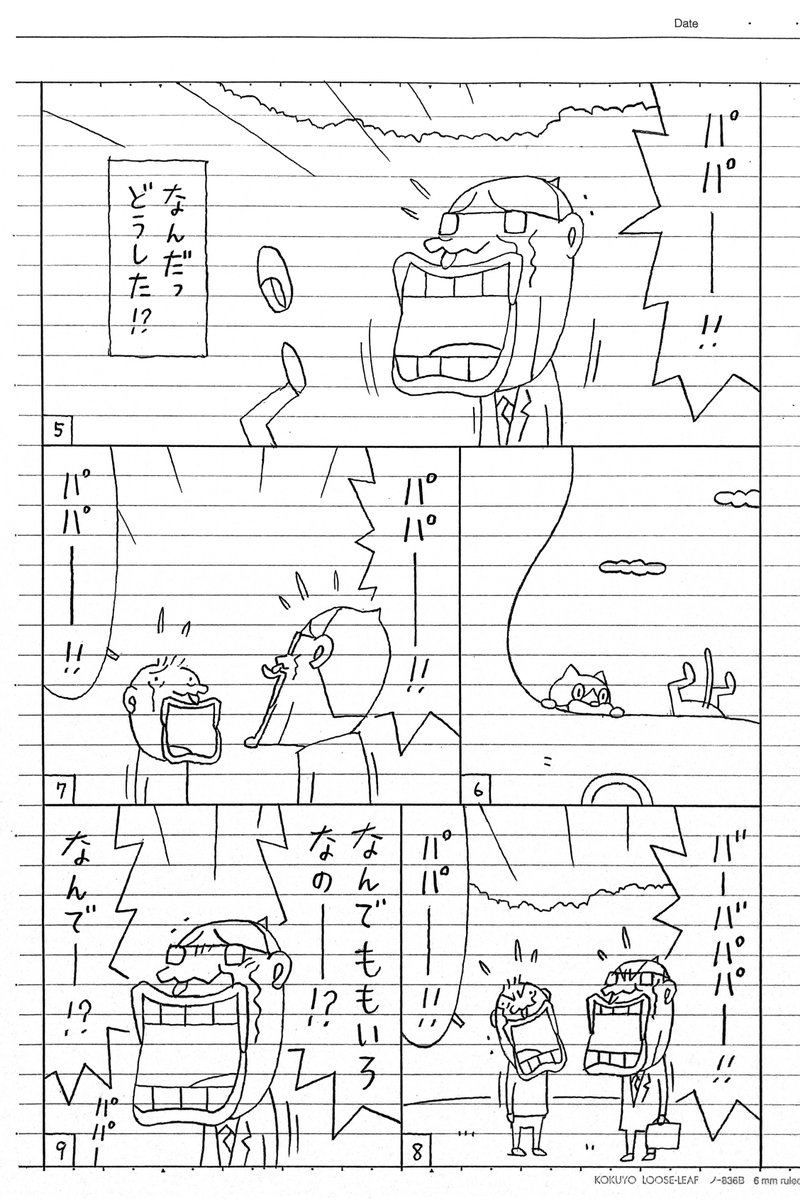 Date
パパーー!!
なんだっ
どうした!?
5
6
パパーー!!
パパーー!!
7
バーバパパーー!!
パパーー!!
8
なんでももいろ
なのーー!?
なんでーー!?
パパー
9
KOKUYO LOOSE-LEAF ノ-836B 6 mm ruled